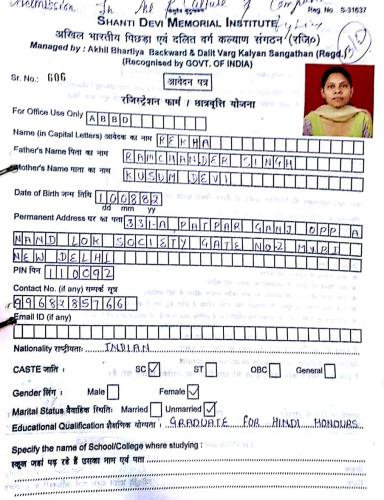 Admission In the Culture of Computer
Reg. No - S-31637
SHANTI DEVI MEMORIAL INSTITUTE
अखिल भारतीय पिछड़ा एवं दलित वर्ग कल्याण संगठन (रजि०)
Managed by : Akhil Bhartiya Backward & Dalit Varg Kalyan Sangathan (Regd.)
(Recognised by GOVT. OF INDIA)
Sr. No.: 606
आवेदन पत्र
रजिस्ट्रेशन फार्म / छात्रवृत्ति योजना
For Office Use Only ABBD
Name (in Capital Letters) आवेदक का नाम REKHA
Father's Name पिता का नाम RAMCHANDER SINGH
Mother's Name माता का नाम KUSUM DEVI
Date of Birth जन्म तिथि 100882
dd mm yy
Permanent Address घर का पता 331-A PATPAR GANJ OPP A
NAND LOK SOCIETY GATE NO2 MVPI
NEW DELHI
PIN पिन 110092
Contact No. (if any) सम्पर्क सूत्र
9968285766
Email ID (if any)
Nationality राष्ट्रीयताः INDIAN
CASTE जाति : SC ✓ ST OBC General
Gender लिंग : Male Female ✓
Marital Status वैवाहिक स्थितिः Married Unmarried ✓
Educational Qualification शैक्षणिक योग्यता : GRADUATE FOR HINDI HONOURS
Specify the name of School/College where studying :
स्कूल जहां पढ़ रहे हैं उसका नाम एवं पता